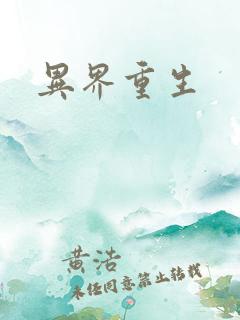 異界重生
黄浩
未经同意禁止转载